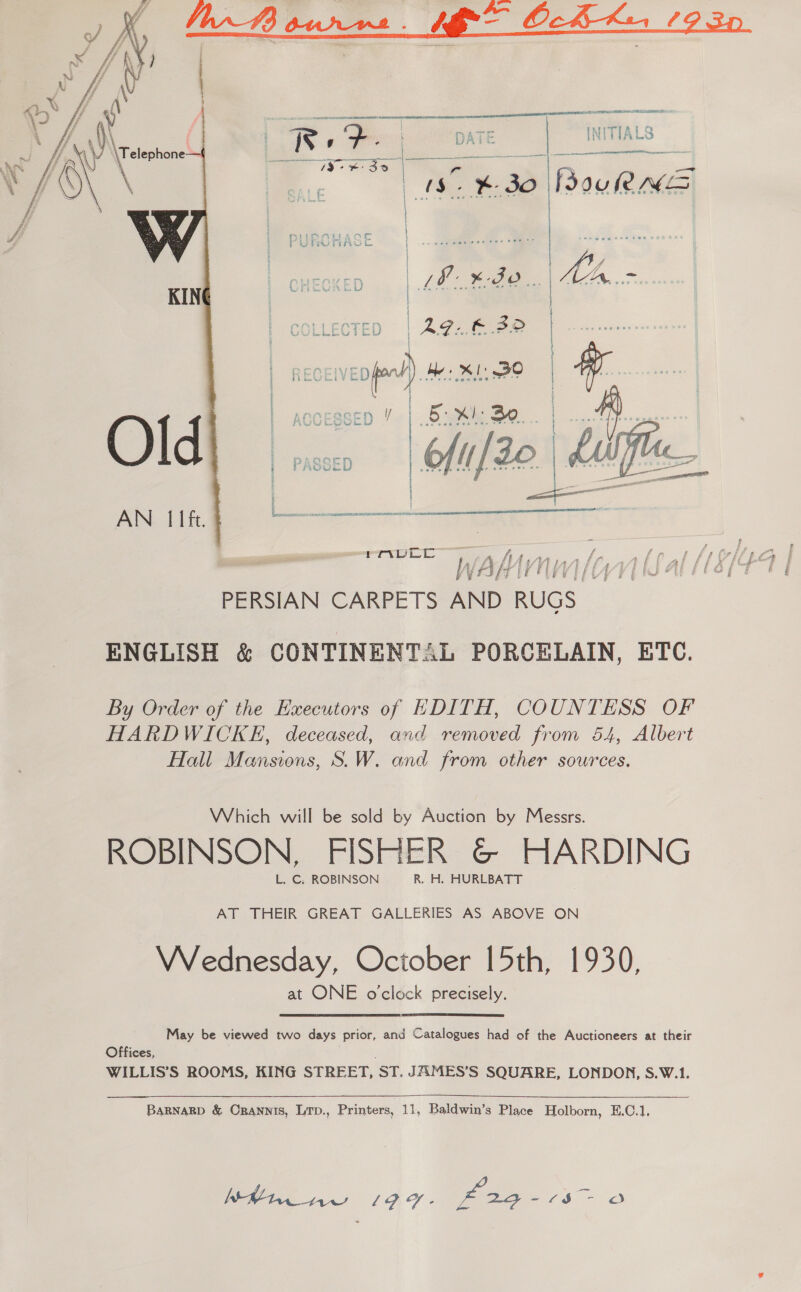 Mr Bourne. 15th October 1930
Telephone
R.F. DATE INITIALS
15.X.30
SALE 15.X.30 BOURNE
PURCHASE
W
CHECKED
KING
COLLECTED
RECEIVED part) XI.30
ACCESSED 5.XI.30
Old
PASSED 6/11/30
AN 11ft.
TABLE
PERSIAN CARPETS AND RUGS
ENGLISH & CONTINENTAL PORCELAIN, ETC.
By Order of the Executors of EDITH, COUNTESS OF
HARDWICKE, deceased, and removed from 54, Albert
Hall Mansions, S.W. and from other sources.
Which will be sold by Auction by Messrs.
ROBINSON, FISHER & HARDING
L. C. ROBINSON R. H. HURLBATT
AT THEIR GREAT GALLERIES AS ABOVE ON
Wednesday, October 15th, 1930,
at ONE o'clock precisely.
May be viewed two days prior, and Catalogues had of the Auctioneers at their
Offices,
WILLIS'S ROOMS, KING STREET, ST. JAMES'S SQUARE, LONDON, S.W.1.
BARNARD & CRANNIS, LTD., Printers, 11, Baldwin's Place Holborn, E.C.1.
199. £29-15-0